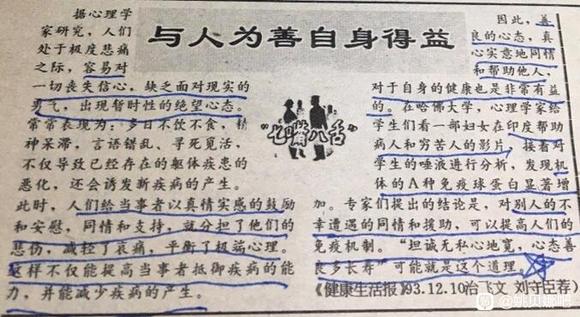 与人为善自身得益
据心理学
家研究，人们
处于极度悲痛
之际，容易对
一切丧失信心，缺乏面对现实的
勇气，出现暂时性的绝望心态。
常常表现为：多日不饮不食，精
神呆滞，言语错乱、寻死觅活，
不仅导致已经存在的躯体疾患的
恶化，还会诱发新疾病的产生。
此时，人们给当事者以真情实感的鼓励
和安慰，同情和支持，就分担了他们的
悲伤，减轻了哀痛，平衡了极端心理。
这样不仅能提高当事者抵御疾病的能
力，并能减少疾病的产生。
"七嘴八舌"
因此，善
良的心态，真
心实意地同情
和帮助他人，
对于自身的健康也是非常有益
的。在哈佛大学，心理学家给
学生们看一部妇女在印度帮助
病人和穷苦人的影片，接着对
学生的唾液进行分析，发现机
体的A种免疫球蛋白显著增
加。专家们提出的结论是，对别人的不
幸遭遇的同情和援助，可以提高人们的
免疫机制。"坦诚无私心地宽，心态善
良多长寿"可能就是这个道理。
《健康生活报》93.12.10治飞文 刘守臣荐）
姚贝娜吧